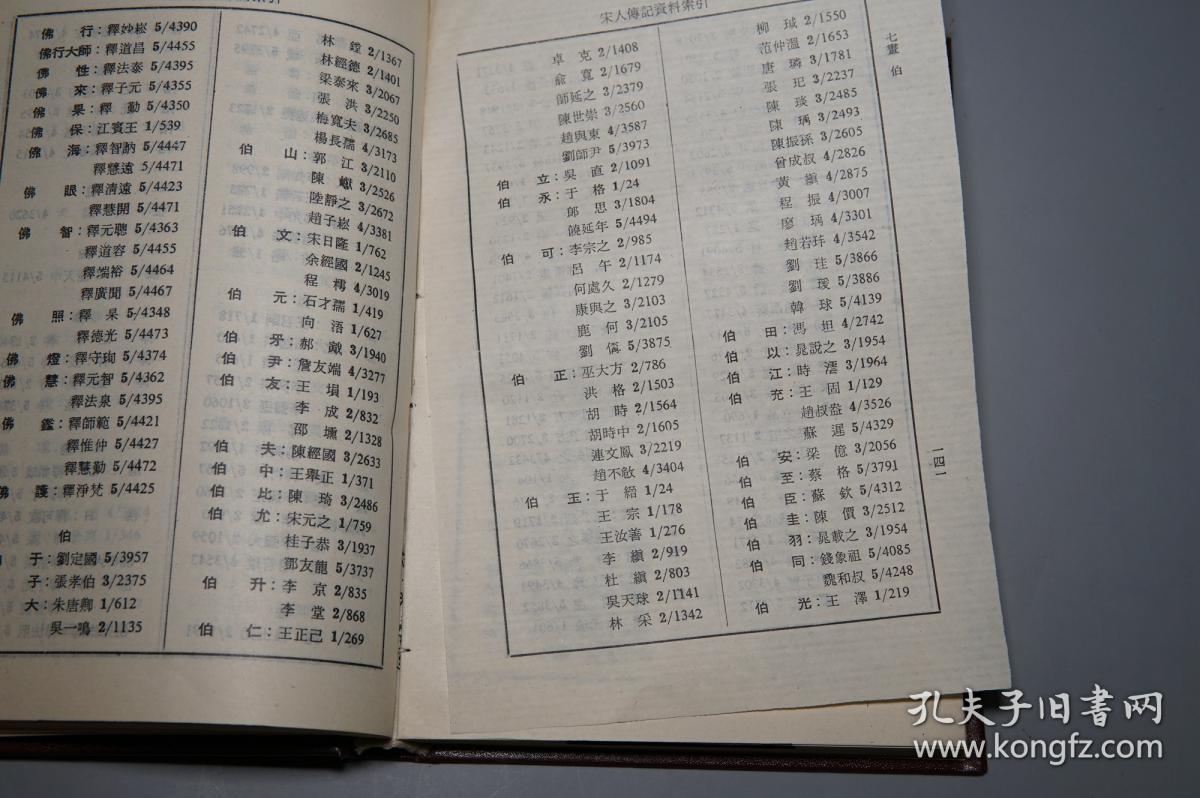 佛　行：釋妙崧 5/4390
佛行大師：釋道昌 5/4455
佛　性：釋法泰 5/4395
佛　來：釋子元 4/4355
佛　果：釋　勤 5/4350
佛　保：江賓王 1/539
佛　海：釋智訥 5/4447
釋慧遠 5/4471
佛　眼：釋清遠 5/4423
釋慧開 5/4471
佛　智：釋元聰 5/4363
釋道容 5/4455
釋端裕 5/4464
釋廣聞 5/4467
佛　照：釋　杲 5/4348
釋德光 5/4473
佛　燈：釋守珣 5/4374
佛　慧：釋元智 5/4362
釋法泉 5/4395
佛　鑑：釋師範 5/4421
釋惟仲 5/4427
釋慧勤 5/4472
佛　護：釋淨梵 5/4425
伯
于：劉定國 5/3957
子：張孝伯 3/2375
大：朱唐卿 1/612
吳一鳴 2/1135
林　鏜 2/1367
林經德 2/1401
梁泰來 3/2067
張　洪 3/2250
梅寬夫 3/2685
楊長孺 4/3173
伯　山：郭　江 3/2110
陳　巘 3/2526
陸靜之 3/2672
趙子崧 4/3381
伯　文：宋日隆 1/762
余經國 2/1245
程　樗 4/3019
伯　元：石才孺 1/419
向　浯 1/627
伯　牙：郝　戭 3/1940
伯　尹：詹友端 4/3277
伯　友：王　塤 1/193
李　成 2/832
邵　壎 2/1328
伯　夫：陳經國 3/2633
伯　中：王舉正 1/371
伯　比：陳　琦 3/2486
伯　尤：宋元之 1/759
桂子恭 3/1937
鄧友龍 5/3737
伯　升：李　京 2/835
李　堂 2/868
伯　仁：王正己 1/269
宋人傳記資料索引
卓　克 2/1408
俞　寬 2/1679
師延之 3/2379
陳世崇 3/2560
趙與東 4/3587
劉師尹 5/3973
伯　立：吳　直 2/1091
伯　永：于　格 1/24
郎　思 3/1804
饒延年 5/4494
伯　可：李宗之 2/985
呂　午 2/1174
何處久 2/1279
康與之 3/2103
鹿　何 3/2105
劉　儞 5/3875
伯　正：巫大方 2/786
洪　格 2/1503
胡　時 2/1564
胡時中 2/1605
連文鳳 3/2219
趙不敵 4/3404
伯　玉：于　縉 1/24
王　宗 1/178
王汝善 1/276
李　縝 2/919
杜　縝 2/803
吳天球 2/1141
林　采 2/1342
柳　瑊 2/1550
范仲溫 2/1653
唐　璘 3/1781
張　玘 3/2237
陳　琰 3/2485
陳　瑀 3/2493
陳振孫 3/2605
曾成叔 4/2826
黃　縝 4/2875
程　振 4/3007
廖　瑀 4/3301
趙若玤 4/3542
劉　珪 5/3866
劉　瑗 5/3886
韓　球 5/4139
伯　田：馮　坦 4/2742
伯　以：晁說之 3/1954
伯　江：時　澐 3/1964
伯　充：王　固 1/129
趙叔盎 4/3526
蘇　遲 5/4329
伯　安：梁　億 3/2056
伯　至：蔡　格 5/3791
伯　臣：蘇　欽 5/4312
伯　圭：陳　價 3/2512
伯　羽：晁載之 3/1954
伯　同：錢象祖 5/4085
魏和叔 5/4248
伯　光：王　澤 1/219
七畫　伯
一四一
孔夫子旧书网
www.kongfz.com